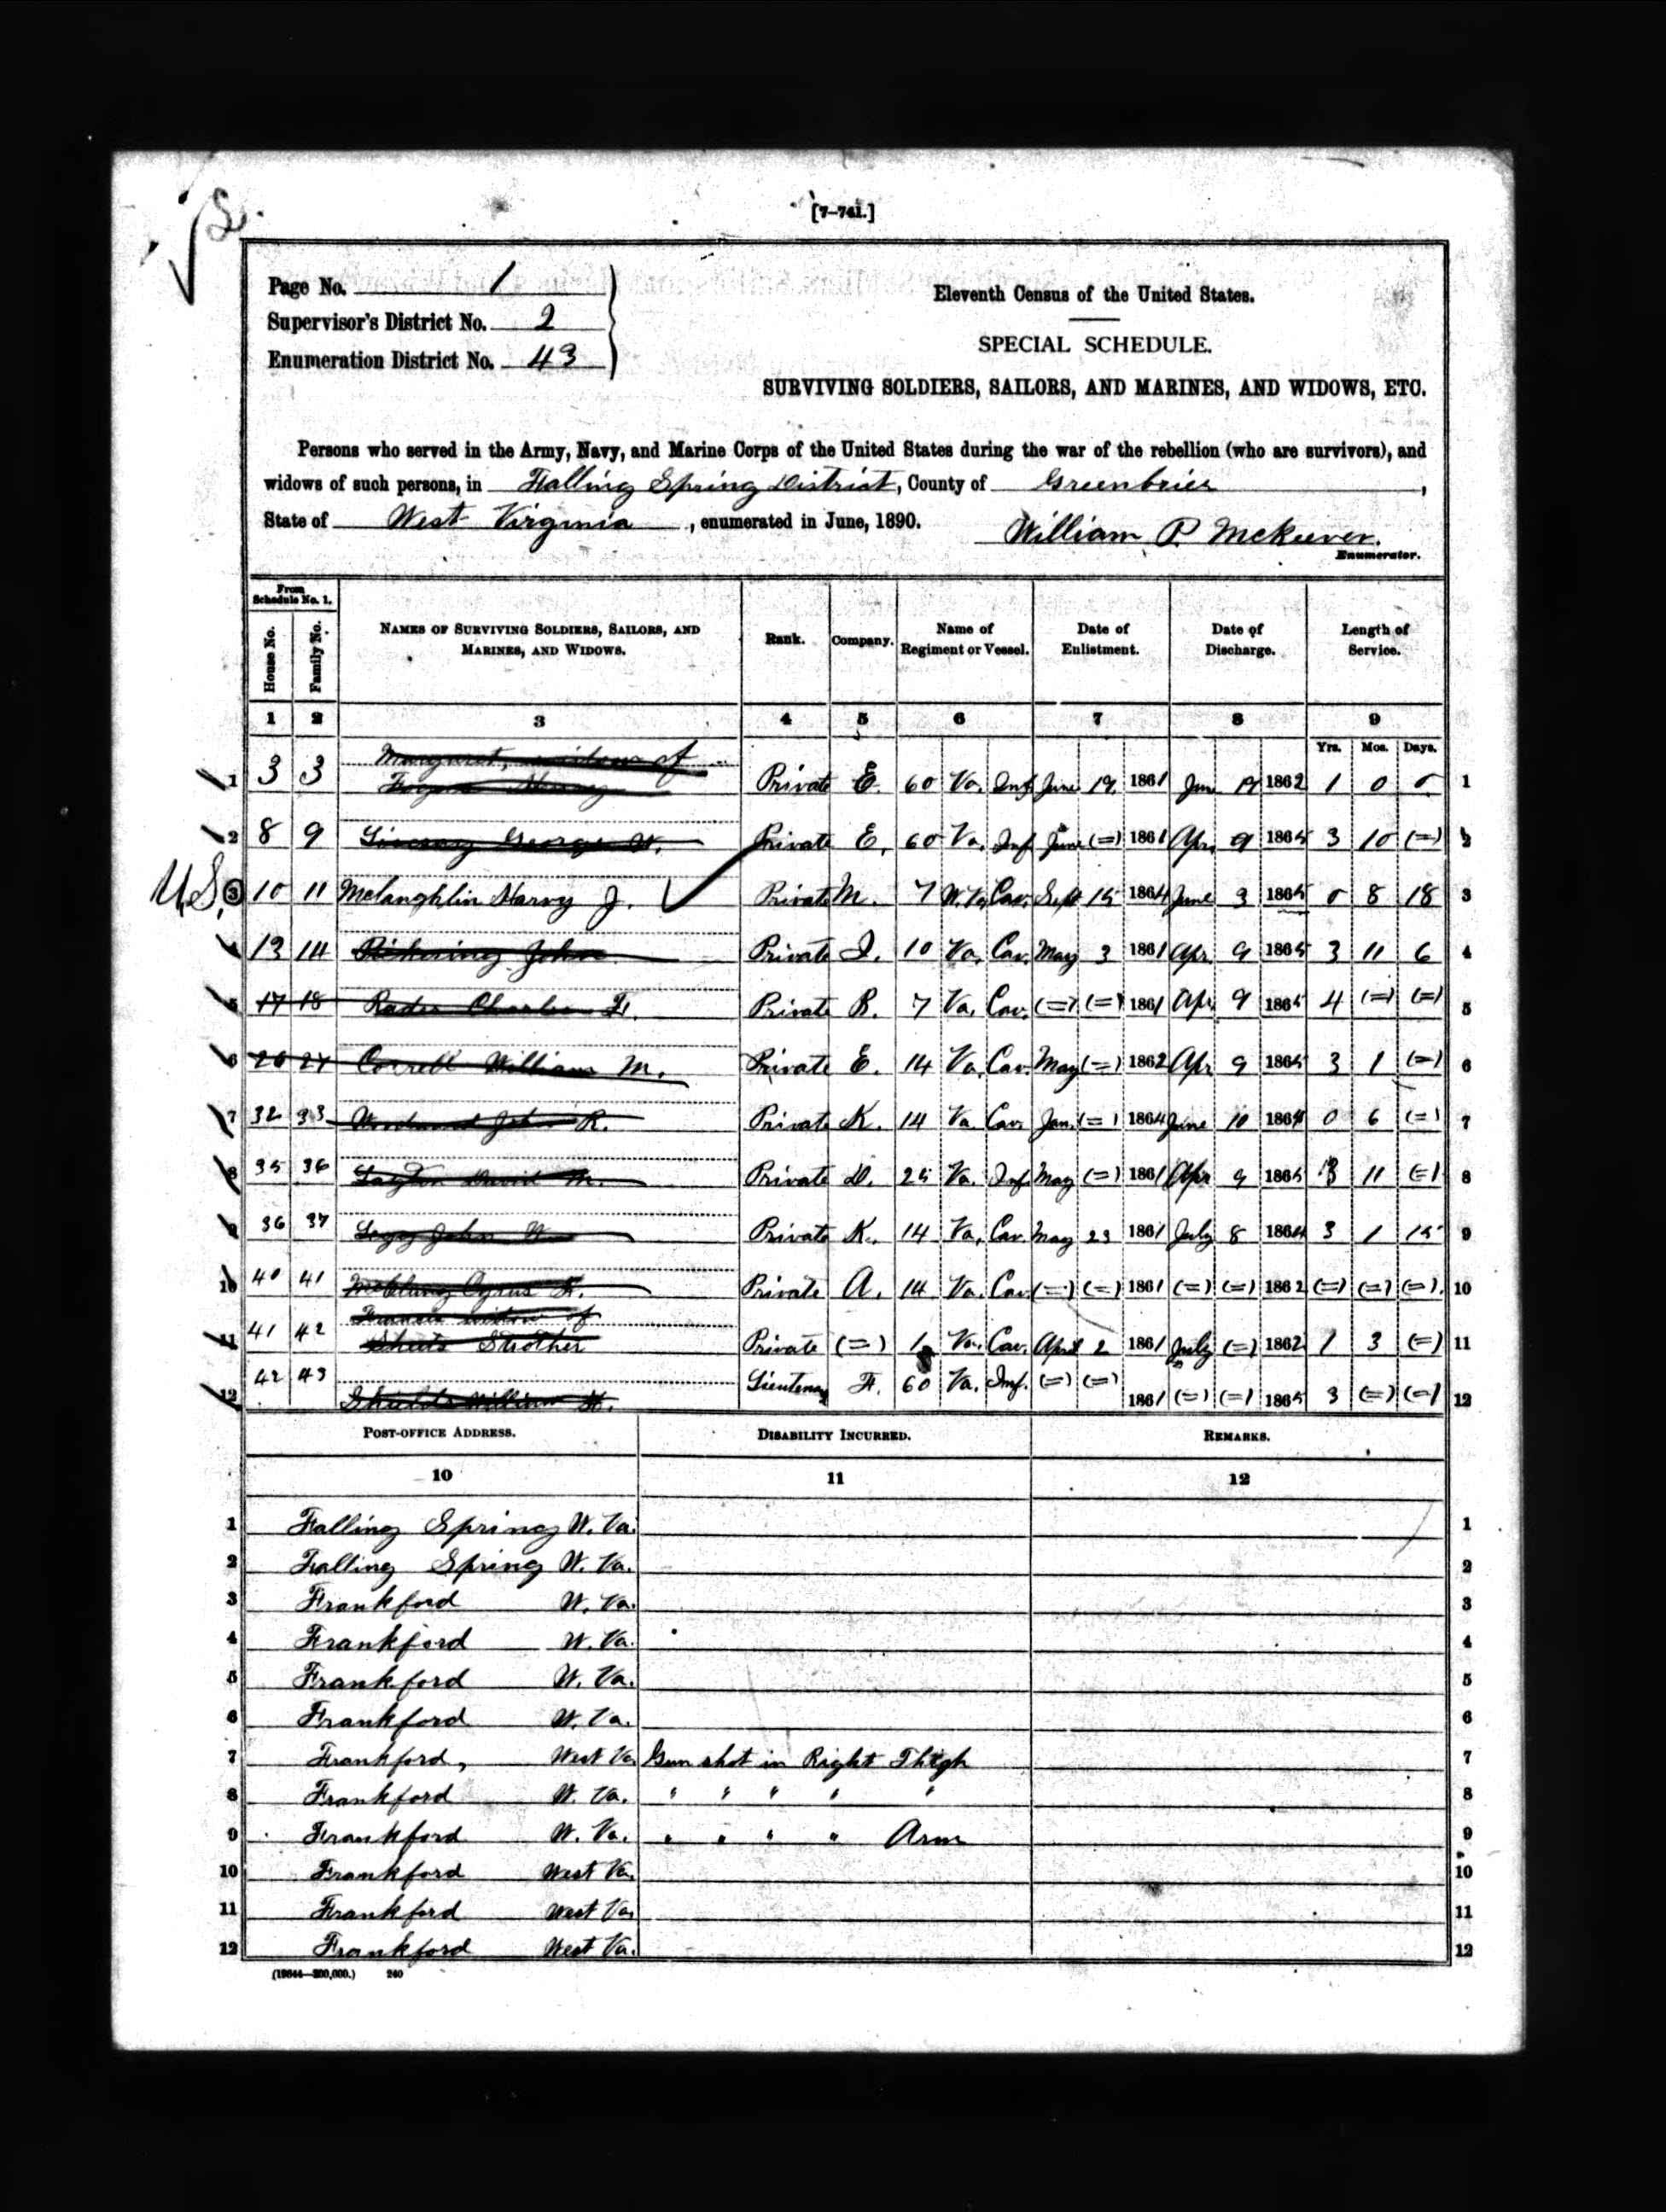 [7-741.]
Page No. 1
Supervisor's District No. 2
Enumeration District No. 43
Eleventh Census of the United States.
SPECIAL SCHEDULE.
SURVIVING SOLDIERS, SAILORS, AND MARINES, AND WIDOWS, ETC.
Persons who served in the Army, Navy, and Marine Corps of the United States during the war of the rebellion (who are survivors), and
widows of such persons, in Falling Spring District, County of Greenbrier,
State of West Virginia, enumerated in June, 1890.
William P. McKeever.
Enumerator.
From Schedule No. 1.
House No. Family No. NAMES OF SURVIVING SOLDIERS, SAILORS, AND MARINES, AND WIDOWS. Rank. Company. Name of Regiment or Vessel. Date of Enlistment. Date of Discharge. Length of Service.
1 2 3 4 5 6 7 8 9
Yrs. Mos. Days.
Margaret, widow of
1 3 3 Henry Private E. 60 Va. Inf June 19, 1861 Jun 19 1862 1 0 0 1
2 8 9 George W. Private E. 60 Va. Inf June (=) 1861 Apr. 9 1865 3 10 (=) 2
U.S. 3 10 11 McLaughlin Harvy J. Private M. 7 W.Va. Cav. Sept 15 1864 June 3 1865 0 8 18 3
4 13 14 Pickering John Private I. 10 Va. Cav. May 3 1861 Apr. 9 1865 3 11 6 4
5 17 18 Rader Charles F. Private B. 7 Va. Cav. (=) (=) 1861 Apr. 9 1865 4 (=) (=) 5
6 26 27 Correll William M. Private E. 14 Va. Cav. May (=) 1862 Apr 9 1865 3 1 (=) 6
7 32 33 John R. Private K. 14 Va. Cav. Jan. (=) 1864 June 10 1864 0 6 (=) 7
8 35 36 David M. Private D. 25 Va. Inf May (=) 1861 Apr 9 1865 3 11 (=) 8
9 36 37 John W Private K. 14 Va. Cav. May 23 1861 July 8 1864 3 1 15 9
10 40 41 McClung Cyrus Private A. 14 Va. Cav (=) (=) 1861 (=) (=) 1862 (=) (=) (=). 10
widow of
11 41 42 Sheets Strother Private (=) Va. Cav. April 2 1861 July (=) 1862 1 3 (=) 11
12 42 43 Shields William H. Lieutenant F. 60 Va. Inf. (=) (=) 1861 (=) (=) 1865 3 (=) (=) 12
POST-OFFICE ADDRESS. DISABILITY INCURRED. REMARKS.
10 11 12
1 Falling Spring W. Va. 1
2 Falling Spring W. Va. 2
3 Frankford W. Va. 3
4 Frankford W. Va. 4
5 Frankford W. Va. 5
6 Frankford W. Va. 6
7 Frankford, West Va Gun shot in Right Thigh 7
8 Frankford W. Va. " " " " " 8
9 Frankford W. Va. " " " " Arm 9
10 Frankford West Va. 10
11 Frankford West Va. 11
12 Frankford West Va. 12
(19644—200,000.) 240